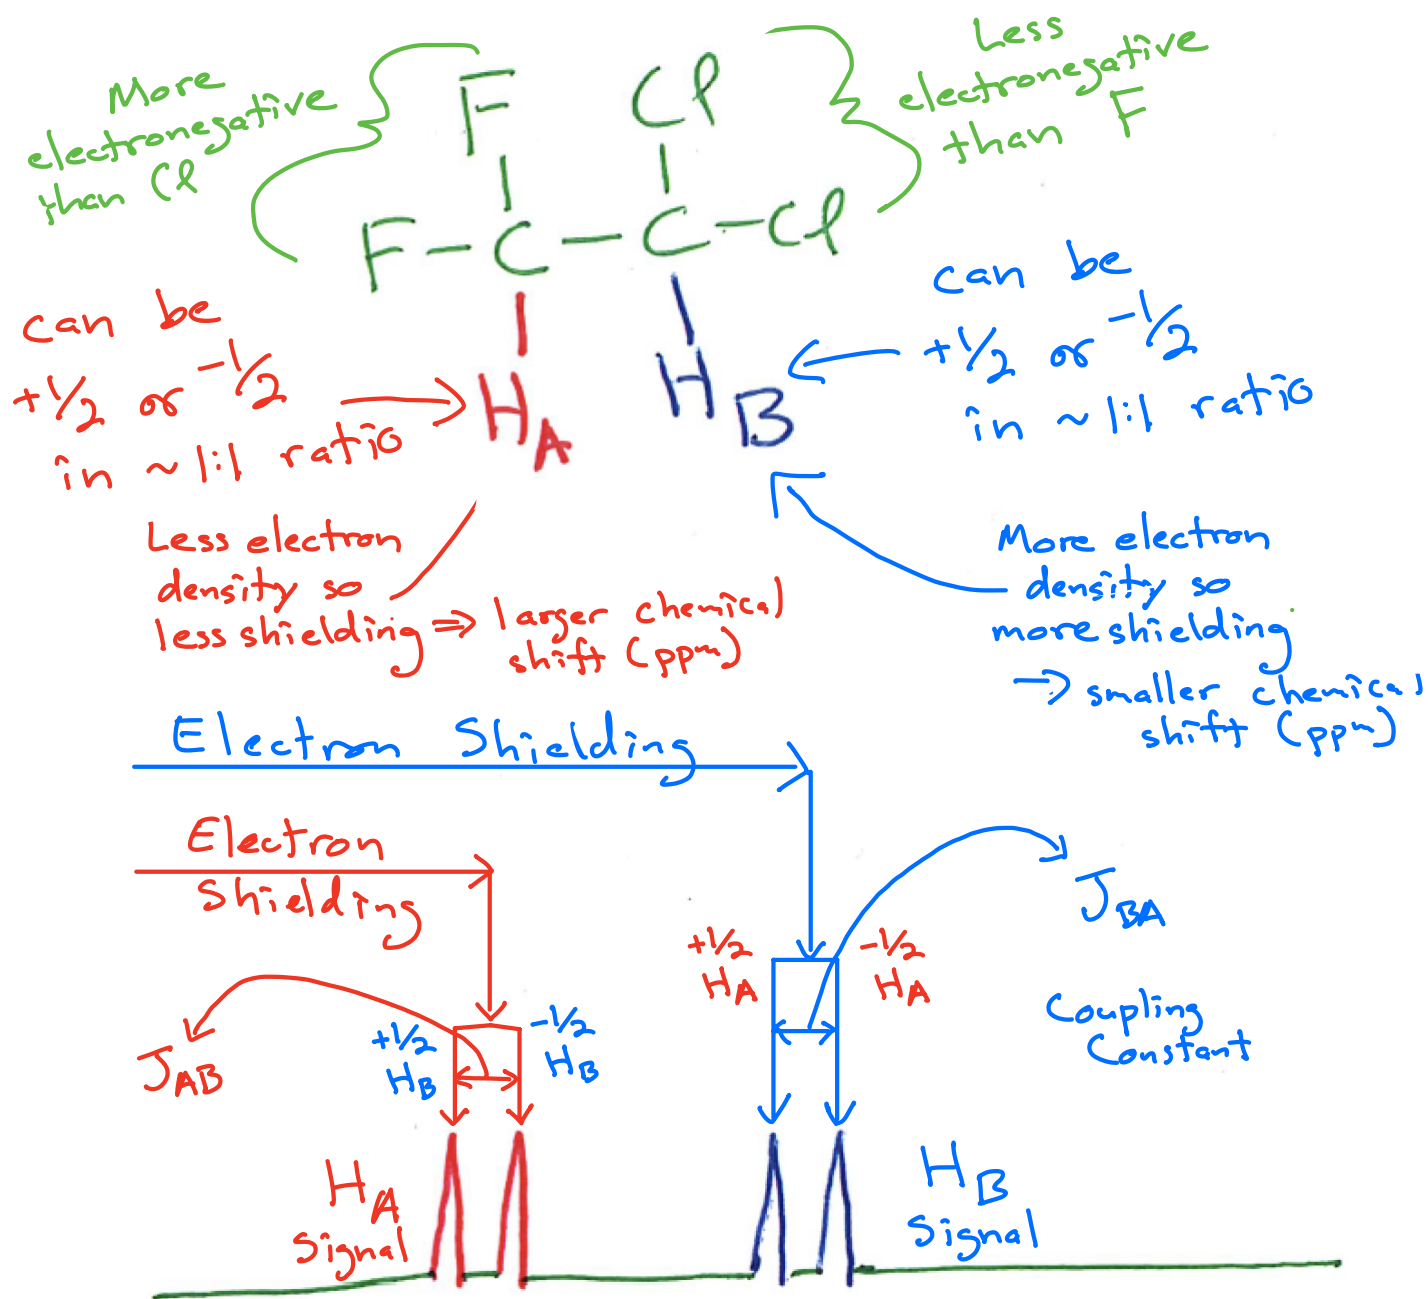 More
electronegative
than Cl
Less
electronegative
than F
F
Cl
F-C-C-Cl
H
A
H
B
can be
+1/2 or -1/2
in ~ 1:1 ratio
can be
+1/2 or -1/2
in ~ 1:1 ratio
Less electron
density so
less shielding => larger chemical
shift (ppm)
More electron
density so
more shielding
→ smaller chemical
shift (ppm)
Electron Shielding
Electron
Shielding
J AB
+1/2
H B
-1/2
H B
+1/2
H A
-1/2
H A
J BA
Coupling
Constant
H A
Signal
H B
Signal